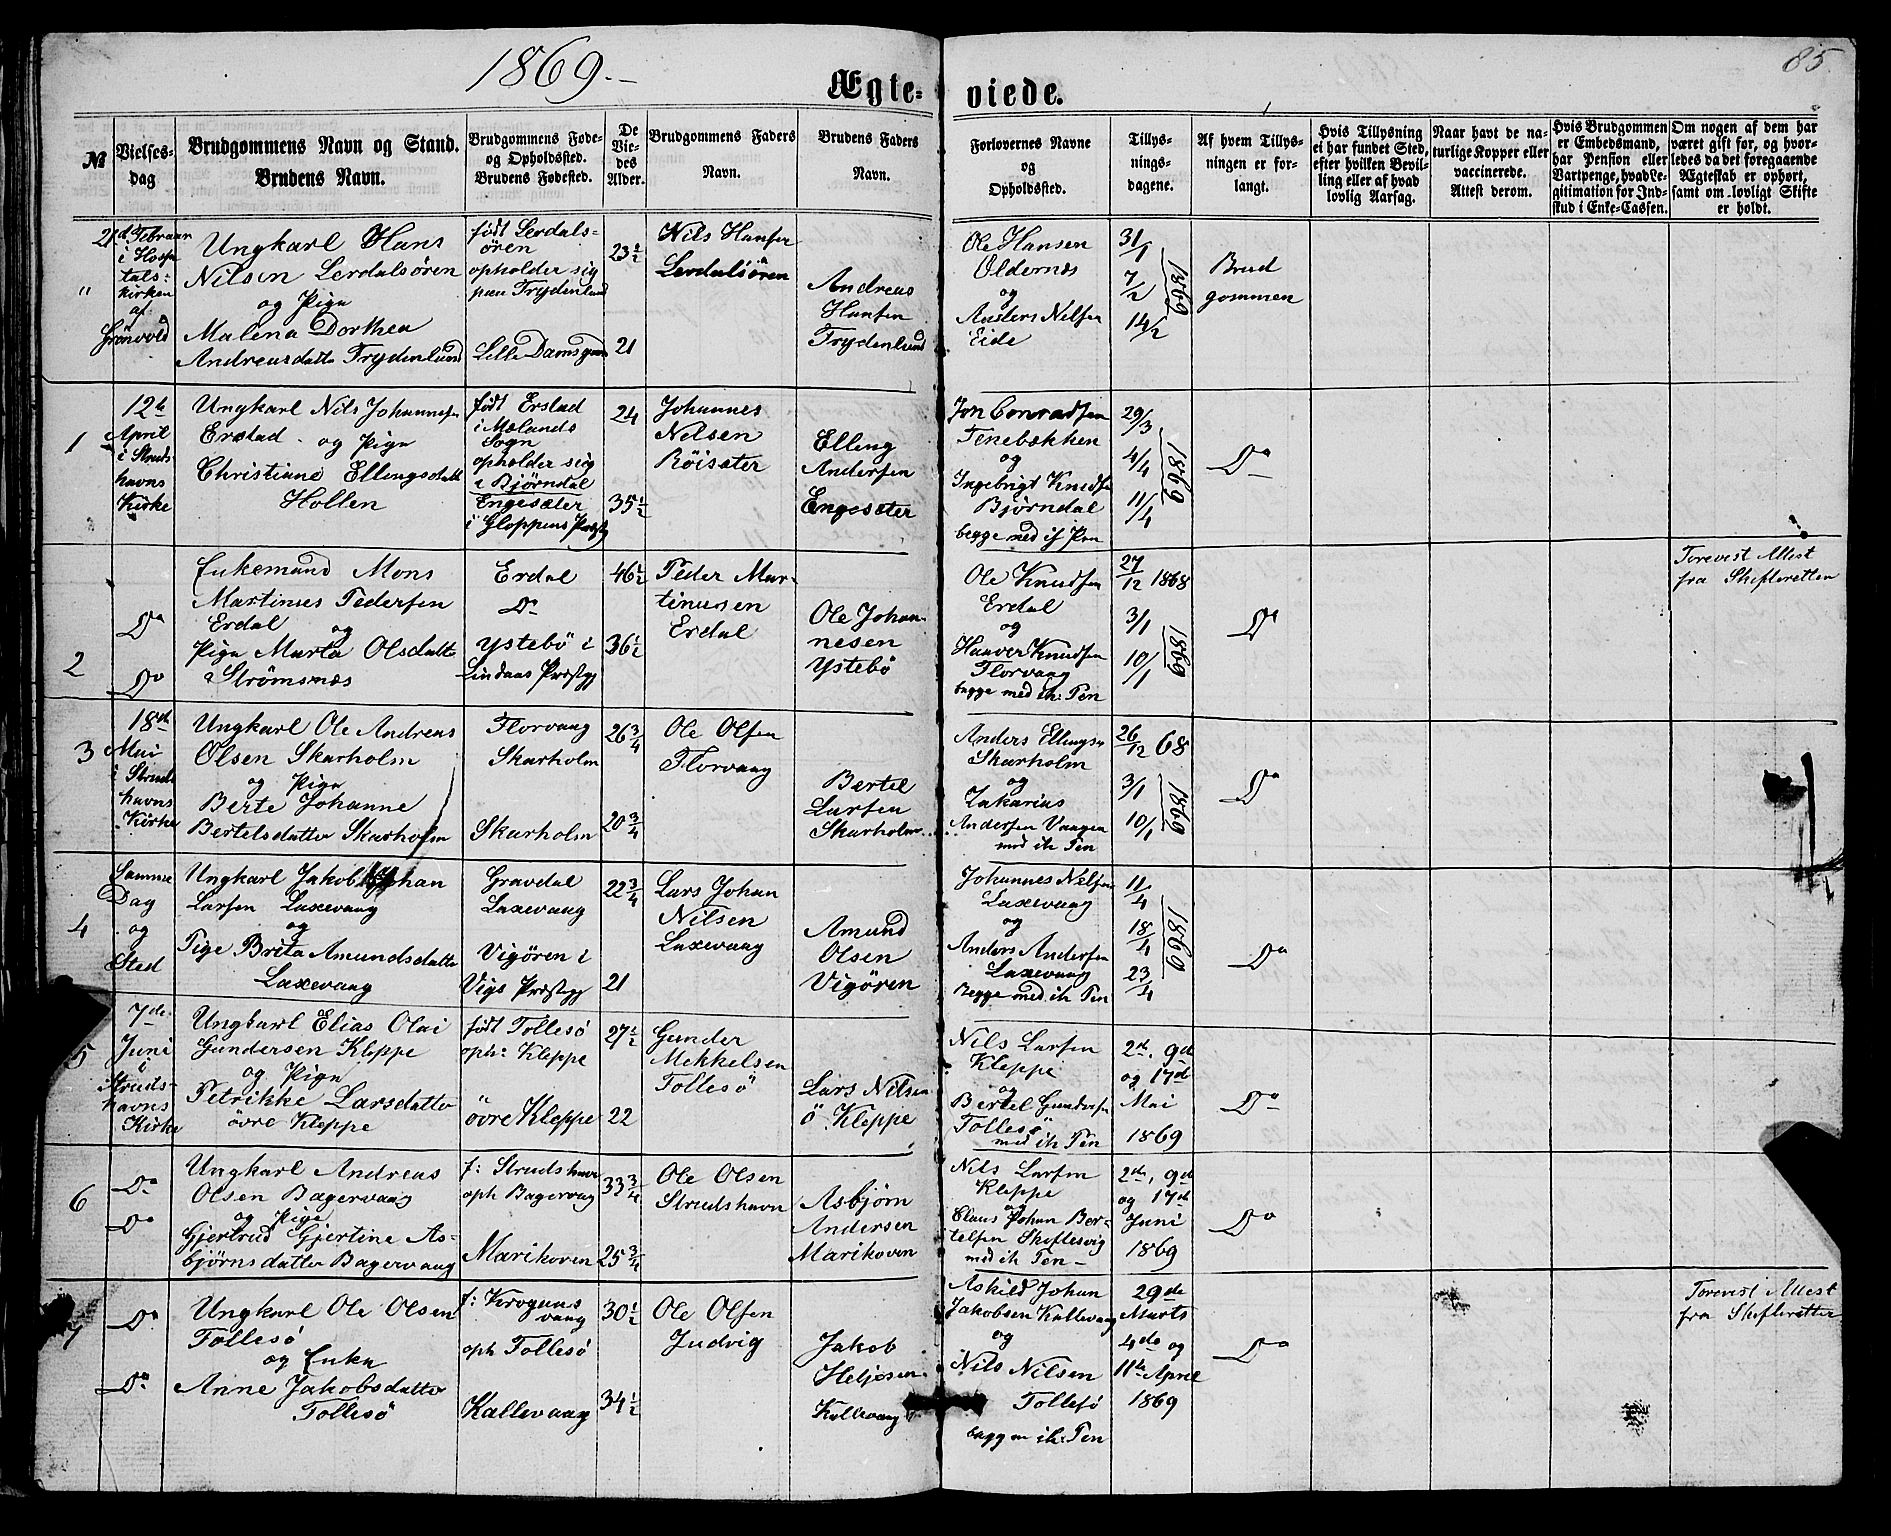 1869.-
85
Ægte- viede.
№
Vielses-
dag
Brudgommens Navn og Stand.
Brudens Navn.
Brudgommens Føde-
og Opholdssted.
Brudens Fødested.
De
Vie-
des
Alder.
Brudgommens Faders
Navn.
Brudens Faders
Navn.
Forlovernes Navne
og
Opholdssted.
Tillys-
nings-
dagene.
Af hvem Tillys-
ningen er for-
langt.
Hvis Tillysning
ei har fundet Sted,
efter hvilken Bevil-
ling eller af hvad
lovlig Aarsag.
Naar havt de na-
turlige Kopper eller
vaccinerede.
Attest derom.
Hvis Brudgommen
er Embedsmand,
har Pension eller
Vartpenge, hvad Le-
gitimation for Ind-
skud i Enke-Cassen.
Om nogen af dem har
været gift før, og hvor-
ledes da det foregaaende
Ægteskab er ophørt,
samt om lovligt Skifte
er holdt.
"
21de Februar
i Hospi
tals-
kirken
af
Grönvold
Ungkarl Hans
Nilsen Lerdalsören
og Pige
Malena Dorthea
Andreasdatte Frydenlund
født Lerdals-
ören
opholder sig
paa Frydenlund
Lille Damsgaard
23½
21
Nils Hansen
Lerdalsören
Andreas
Hansen
Frydenlund
Ole Hansen
Oldernæs
og
Anders Nilsen
Eide
31/1
7/2
14/2
1869
Brud
gommen
1
12te
April
i Struds
havns
Kirke
Ungkarl Nils Johannesen
Erstad og Pige
Christiane Ellingsdatte
Hollen
født Erstad
i Mælands
Sogn
opholder sig
i Bjørndal
Engesæter
i Gloppens Præstgj
24
35½
Johannes
Nilsen
Röisæter
Elling
Andersen
Engesæter
Jon Conradsen
Tenebækken
og
Ingebrigt Knudsen
Bjørndal
begge med if Pen
29/3
4/4
11/4
1869
Do
2
Do
Do
Enkemand Mons
Martinus Pedersen
Erdal og
Pige Marta Olsdatte
Strömsnæs
Erdal
Do
Ystebö i
Lindaas Præstgj
46½
36½
Peder Mar-
tinusen
Erdal
Ole Johan-
nesen
Ystebö
Ole Knudsen
Erdal
og
Haaver Knudsen
Florvaag
begge med ih: Pen
27/12 1868
3/1
10/1
1869
Do
Forevist Attest
fra Skifteretten
3
18de
Mai
i Struds
havns
Kirke
Ungkarl Ole Andreas
Olsen Skarholm
og Pige
Berte Johanne
Bertelsdatter Skarholm
Florvaag
Skarholm
Skarholm
26¾
20¾
Ole Olsen
Florvaag
Bertel
Larsen
Skarholm
Anders Ellingsen
Skarholm
og
Zakarias
Andersen Vaagen
med ih Pen
26/12 68
3/1
10/1
1869
Do
4
Samme
Dag
og
Sted
Ungkarl Jakob Johan
Larsen Laxevaag
og
Pige Brita Amundsdatte
Laxevaag
Gravdal
Laxevaag
Vigören i
Vigs Præstgj
22¾
21
Lars Johan
Nilsen
Laxevaag
Amund
Olsen
Vigören
Johannes Nilsen
Laxevaag
og
Anders Andersen
Laxevaag
Begge med ih Pen
11/4
18/4
23/4
1869
Do
5
7de
Juni
i
Struds-
havns
Kirke
Ungkarl Elias Olai
Gundersen Kleppe
og Pige
Petrikke Larsdatter
övre Kleppe
født Follesö
oph: Kleppe
övre Kleppe
27½
22
Gunder
Mikkelsen
Follesö
Lars Nilsen
ö Kleppe
Nils Larsen
Kleppe
og
Bertel Gundersen
Follesö
med ih Pen
2de, 9de
og 17de
Mai
1869
Do
6
Do
Do
Ungkarl Andreas
Olsen Bagervaag
og Pige
Gjertrud Gjertine As-
bjørnsdatter Bagervaag
f: Strudshavn
oph Bagervaag
Marikoven
33¾
25¾
Ole Olsen
Strudshavn
Asbjørn
Andersen
Marikoven
Nils Larsen
Kleppe
og
Claus Johan Ber-
telsen Skiftesvig
med ih Pen-
2de, 9de
og 17de
Juni
1869
Do
7
Do
Do
Ungkarl Ole Olsen
Follesö
og Enke
Anne Jakobsdatter
Follesö
f: Krogaas
vaag
oph Follesö
Kallevaag
30½
34½
Ole Olsen
Judvig
Jakob
Heljesen
Kallevaag
Askild Johan
Jakobsen Kallevaag
og
Nils Nilsen
Follesö
begg m ih: Pen
29de
Marts
4de og
11te April
1869
Do
Forevist Attest
fra Skifteretten